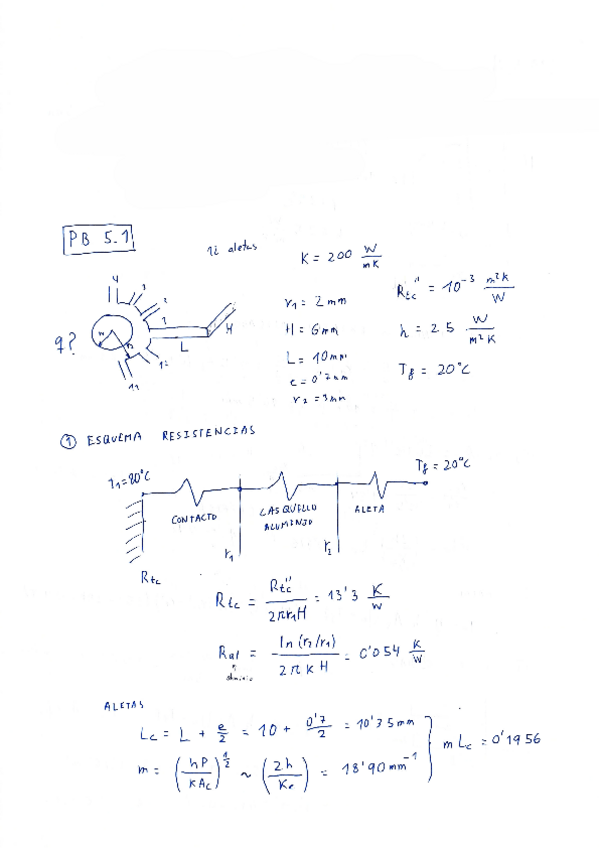 PB 5.1
12 aletas
K = 200 W/mK
4 3 2 1
r1 = 2mm
H = 6mm
L = 10mm
e = 0'7mm
r2 = 3mm
Rtc'' = 10^-3 m²K/W
h = 25 W/m²K
Tf = 20°C
q?
H
L
12
11
① ESQUEMA RESISTENCIAS
T1=80°C
Tf = 20°C
CONTACTO
CASQUILLO ALUMINIO
ALETA
r1
r2
Rtc
Rtc = Rtc''/2πr1H = 13'3 K/W
Ral = ln(r2/r1)/2πKH = 0'054 K/W
aluminio
ALETAS
Lc = L + e/2 = 10 + 0'7/2 = 10'35mm
m = (hP/KAc)^1/2 ~ (2h/Ke) = 18'90 mm^-1
mLc = 0'1956